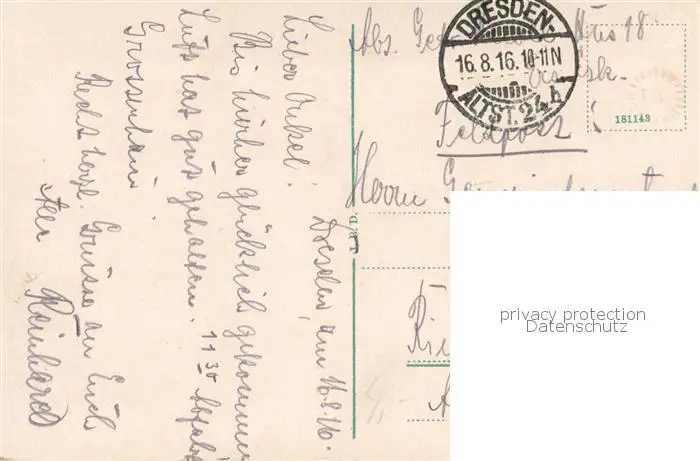 Dresden, am 16.8.16.
Lieber Onkel!
Bis hierher glücklich gekommen
Luft hat gut gehalten. 11 30 Abfahrt
Grossenhain
Recht herzl. Grüsse an Euch
Alle Reinhard
Abs. Hus 18
DRESDEN-
16.8.16.10-11N
ALTST.24h
Feldpost
181143
Herrn
privacy protection
Datenschutz